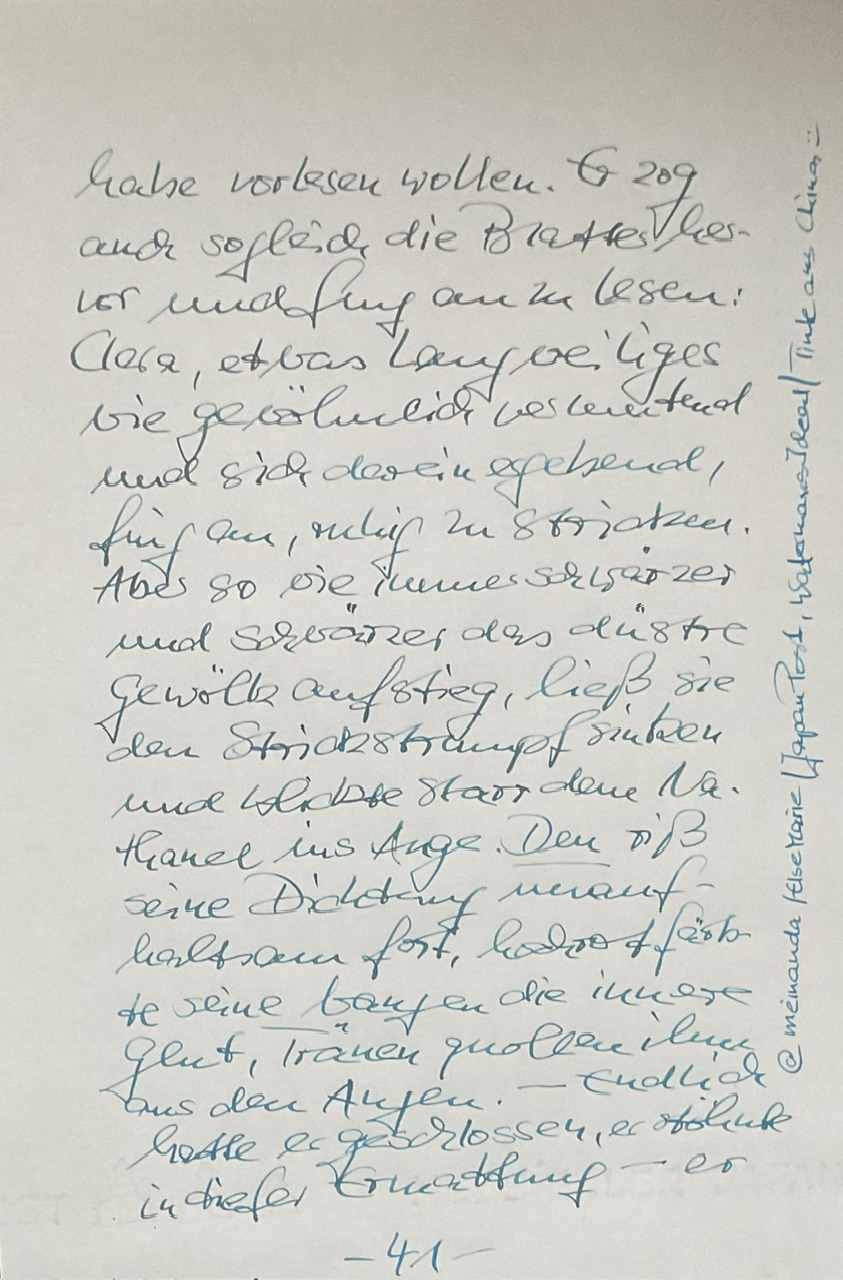 habe vorlesen wollen. Er zog
auch sogleich die Blätter her-
vor und fing an zu lesen:
Clara, etwas Langweiliges
wie gewöhnlich vermutend
und sich darein ergebend,
fing an, ruhig zu stricken.
Aber so wie immer schwärzer
und schwärzer das düstre
Gewölk aufstieg, ließ sie
den Strickstrumpf sinken
und blickte starr dem Na-
thanel ins Auge. Den riß
seine Dichtung unauf-
haltsam fort, hochrot färb-
te seine Wangen die innere
Glut, Tränen quollen ihm
aus den Augen. — Endlich
hatte er geschlossen, er stöhnte
in tiefer Ermattung — er
- 41 -
@ meinanda / ElseMarie / Japan Post, Watermans Ideal / Tinte aus China :-